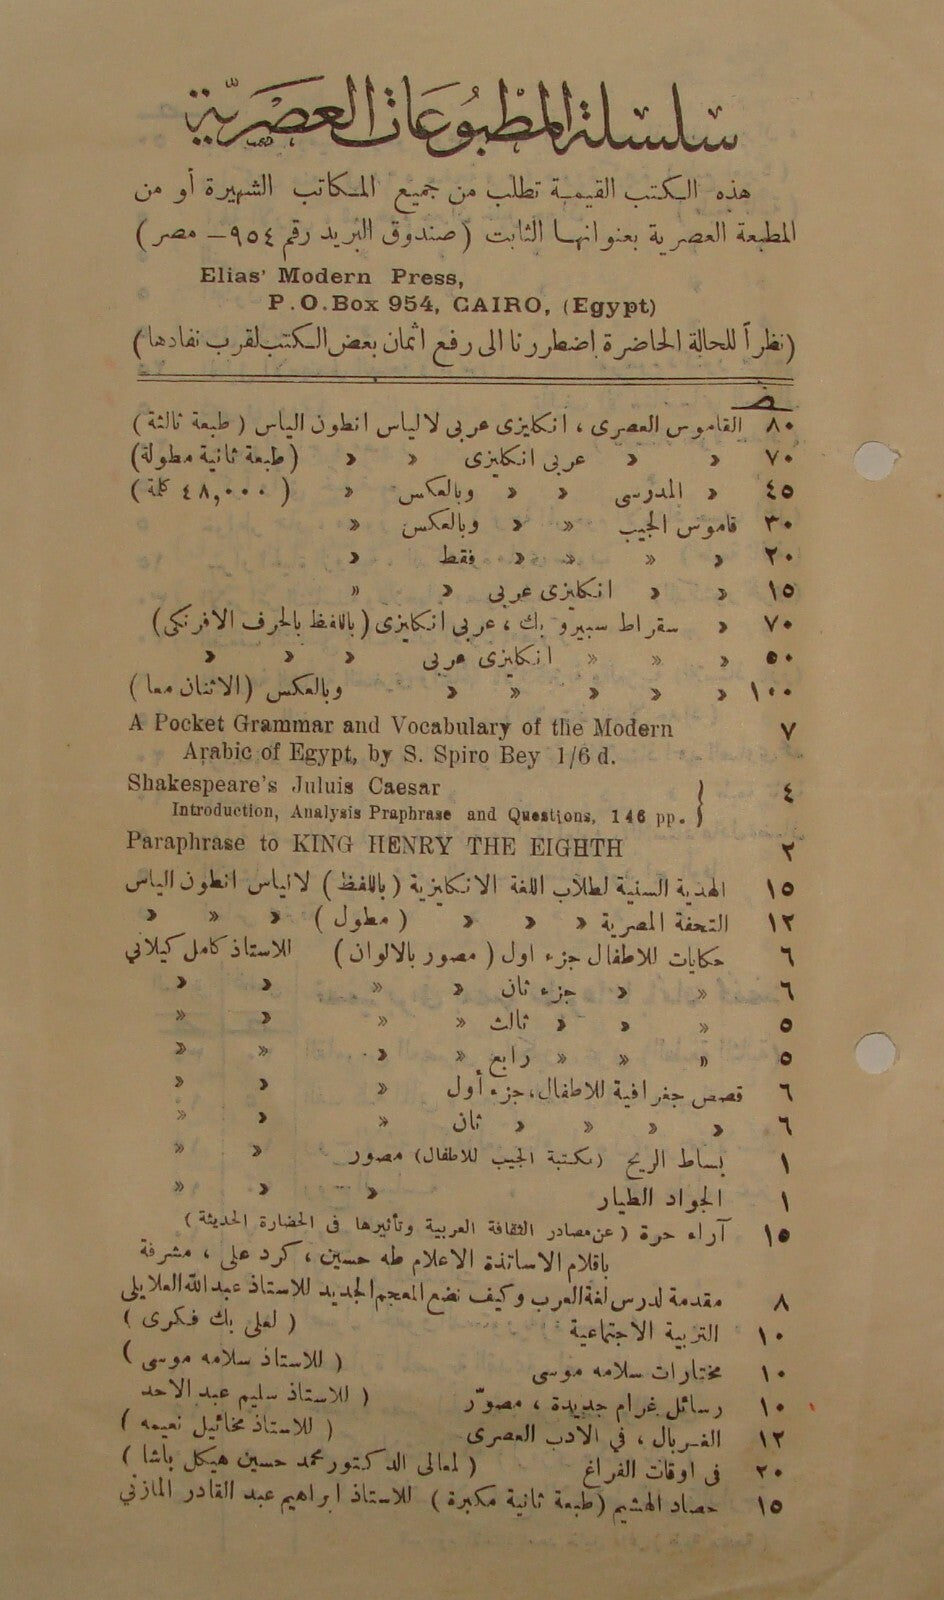 سلسلة المطبوعات العصريّة
هذه الكتب القيمة تطلب من جميع المكاتب الشهيرة أو من
المطبعة العصرية بعنوانها الثابت (صندوق البريد رقم ٩٥٤ – مصر)
Elias' Modern Press,
P.O.Box 954, CAIRO, (Egypt)
(نظراً للحالة الحاضرة اضطررنا الى رفع اثمان بعض الكتب لقرب نفادها)
٨٠ القاموس العصرى ، انكليزى عربى لالياس انطون الياس (طبعة ثالثة)
٧٠ » » عربى انكليزى » » (طبعة ثانية مطولة)
٤٥ » المدرسى » » وبالعكس » (٤٨,٠٠٠ كلمة)
٣٠ قاموس الجيب » » وبالعكس »
٢٠ » » » » فقط »
١٥ » » انكليزى عربى » »
٧٠ » سقراط سبيرو بك ، عربى انكليزى (باللفظ بالحرف الافرنكى)
٥٠ » » » انكليزى عربى » » »
١٠٠ » » » » » وبالعكس (الاثنان معا)
A Pocket Grammar and Vocabulary of the Modern ٧
Arabic of Egypt, by S. Spiro Bey 1/6 d.
Shakespeare's Juluis Caesar ٤
Introduction, Analysis Praphrase and Questions, 146 pp.
Paraphrase to KING HENRY THE EIGHTH ٢
١٥ الهدية السنية لطلاب اللغة الانكليزية (باللفظ) لالياس انطون الياس
١٢ التحفة المصرية » » » (مطول) » » »
٦ حكايات للاطفال جزء اول (مصور بالالوان) للاستاذ كامل كيلانى
٦ » » جزء ثان » » » »
٥ » » » ثالث » » » »
٥ » » » رابع » » » »
٦ قصص جغرافية للاطفال، جزء أول » » »
٦ » » » » ثان » » »
١ بساط الريح (مكتبة الجيب للاطفال) مصور » »
١ الجواد الطيار » » »
١٥ آراء حرة (عن مصادر الثقافة العربية وتأثيرها فى الحضارة الحديثة)
باقلام الاساتذة الاعلام طه حسين ، كرد على ، مشرفة
٨ مقدمة لدرس لغة العرب وكيف نضع المعجم الجديد للاستاذ عبد الله العلايلى
١٠ التربية الاجتماعية (لعلى بك فكرى)
١٠ مختارات سلامه موسى (للاستاذ سلامه موسى)
١٠ رسائل غرام جديدة ، مصوّر (للاستاذ سليم عبد الاحد
١٢ الغربال ، في الادب العصرى (للاستاذ مخائيل نعيمه)
٢٠ فى اوقات الفراغ (لمعالى الدكتور محمد حسين هيكل باشا)
١٥ حصاد الهشيم (طبعة ثانية مكبرة) للاستاذ ابراهيم عبد القادر المازنى